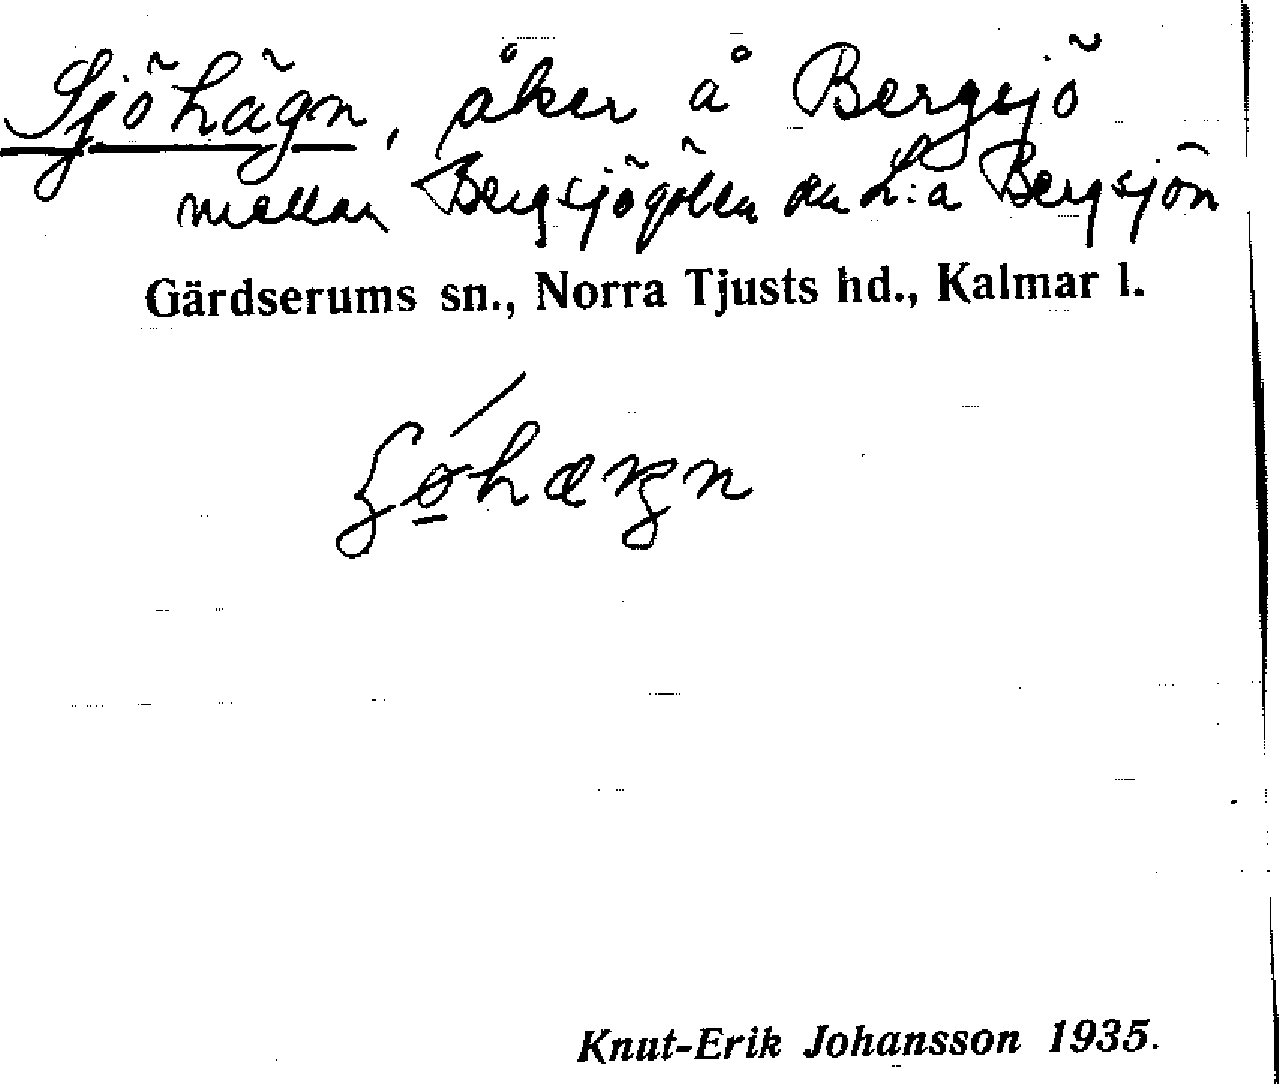 Sjöhägn, åker å Bergsjö
mellan Bergsjögölen och L:a Bergsjön
Gärdserums sn., Norra Tjusts hd., Kalmar l.
Knut-Erik Johansson 1935.